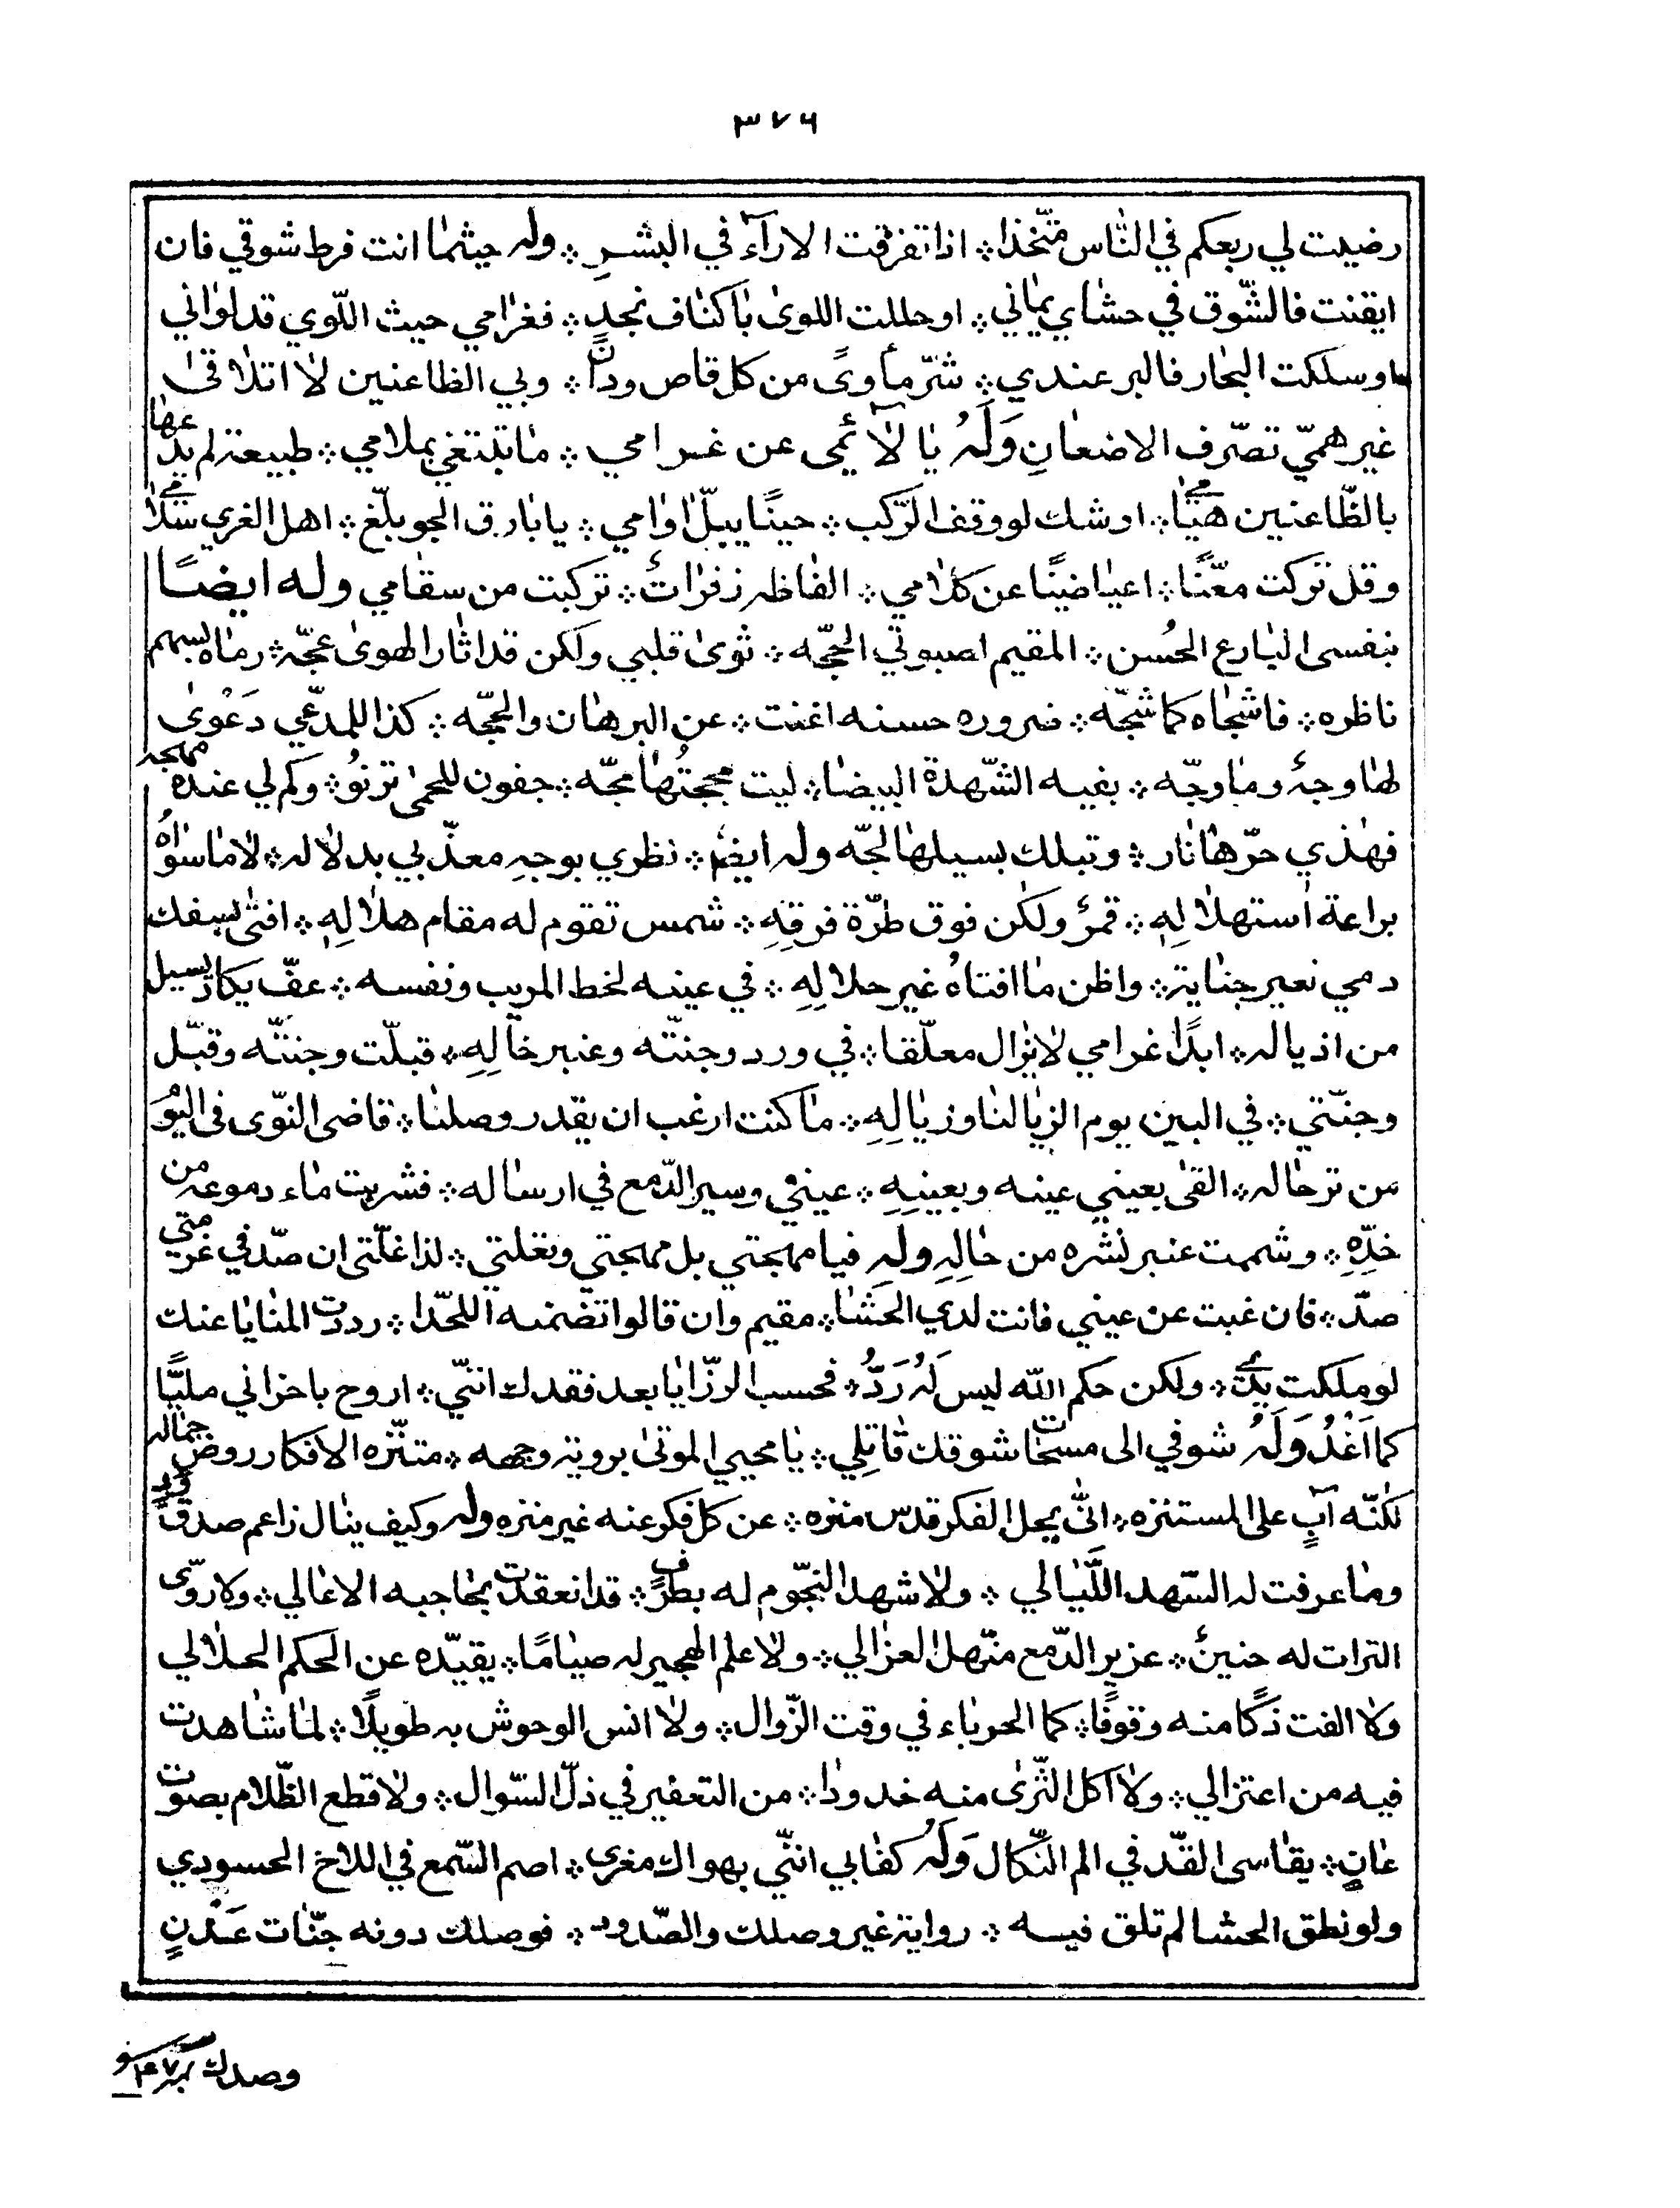 ٣٧٦
رضيت لي ربعكم في النّاس متّخذا ⁘ اذا تفرّقت الارآء في البشرِ ⁘ وله حيثما انت فرط شوقي فان
ايقنت فالشّوق في حشاي يماني ⁘ او حللت اللوىٰ باكناف نجدٍ ⁘ فغرامي حيث اللّوي قد لواني
او سلكت البحار فالبر عندي ⁘ شرّ مأوىً من كل قاص ودانٍ ⁘ وبي الظاعنين لا اتلاقىٰ
غير همّي تصرّف الاضعانِ وَلَهُ يا لآئمى عن غرامي ⁘ ما تبتغي بملامي ⁘ طبيعة لم يدعها
بالظّاعنين هيامي ⁘ اوشك لو وقف الرّكب ⁘ حينًا يبلّ اوامي ⁘ يا بارق الجو بلّغ ⁘ اهل الغري سلامي
وقل تركت معّنًا ⁘ اعياضنًا عن كلامي ⁘ الفاظه زفراتٌ ⁘ تركبت من سقامي وله ايضًا
بنفسى البارع الحُسن ⁘ المقيم اصبوتي الحجّه ⁘ ثوىٰ قلبي ولكن قد اثار الهوىٰ عجّه ⁘ رماه بسهم
ناظره ⁘ فاشجاه كما شجّه ⁘ ضروره حسنه اغنت ⁘ عن البرهان والحجّه ⁘ كذا للمدّعي دَعْوىٰ
لها وجهٌ وما وجّه ⁘ بفيه الشّهدة البيضا ⁘ ليت مججتُها مجّه ⁘ جفون للحمىٰ ترنوُ ⁘ وكم لي عنده مهجه
فهٰذي حرّها نار ⁘ وتبلك بسيلها لجّه وله ايضا ⁘ نظري بوجهِ معذّبي بدلاله ⁘ لا ما سواهُ
براعة استهلالِهِ ⁘ قمرٌ ولكن فوق طرّة فرقِهِ ⁘ شمس تقوم له مقام هلالِهِ ⁘ افتىٰ بسفك
دمي نعير جناية ⁘ واظن ما افتاهُ غير حلالِهِ ⁘ في عينه لخط المريب ونفسه ⁘ عفّ يكاد يسيل
من اذياله ⁘ ابدًا غرامي لا يزال معلّقا ⁘ في ورد وجنتّه وعنبر خالِهِ ⁘ قبلّت وجنتّه وقبّل
وجنّتي ⁘ في البين يوم الزيالنا وزيالِهِ ⁘ ما كنت ارغب ان يقدر وصلنا ⁘ قاضى النوّى فى اليوم
من ترحاله ⁘ القىٰ بعيني عينه وبعينِهِ ⁘ عيني وسير الدّمع في ارساله ⁘ فشربت ماء دموعه من
خدِّهِ ⁘ وشممت عنبر نشره من خالِهِ ولَهِ فيا مهجتي بل مهجتي وتغلتي ⁘ لذا غلّتى ان صدّ في غربتي
صدّ ⁘ فان غبت عن عيني فانت لدي الحشا ⁘ مقيم وان قالوا تضمنه اللحّدا ⁘ رددت المنايا عنك
لو ملكت يدي ⁘ ولكن حكم الله ليس لَهُ رَدُّ ⁘ فحسب الرزّايا بعد فقدك انّني ⁘ اروح باحزاني مليًّا
كما اَغْدُ وَلَهُ شوفي الى مسحات شوقك قاتِلي ⁘ يا محيي الموتىٰ بروية وجهه ⁘ متنّزه الافكار روض جماله
لكنّه آبٍ على المستنزه ⁘ انّىٰ يحل الفكر قدّس منزه ⁘ عن كل فكر عنه غير منزه وله وكيف ينال زاعم صدق
وما عرفت له السّهد اللَّيالي ⁘ ولا شهد النجّوم له بطرفٍ ⁘ قد انعقدت بحاجبه الاعالي ⁘ ولا روّى
الترات له حنينٌ ⁘ عزير الدّمع منّهل العزالي ⁘ ولا علم الهجير له صيامًا ⁘ يقيّده عن الحكم الحلالي
ولا الفت ذكًا منه وقوفًا ⁘ كما الحرباء في وقت الزّوال ⁘ ولا انس الوحوش به طويلًا ⁘ لما شاهدت
فيه من اعتزالي ⁘ ولا آكل الثّرىٰ منه خدودا ⁘ من التعفير في ذلّ السّوال ⁘ ولا قطع الظّلام بصوت
عانٍ ⁘ يقاسى القّد في الم النّكال وَلَهُ كفا بي انّني بهواك مغرى ⁘ اصم السّمع في اللاخ الحسودي
ولو نطق الحشا لم تلق فيسه ⁘ رواية غير وصلك والصّدود ⁘ فوصلك دونه جنّات عَدْنٍ
وصدك